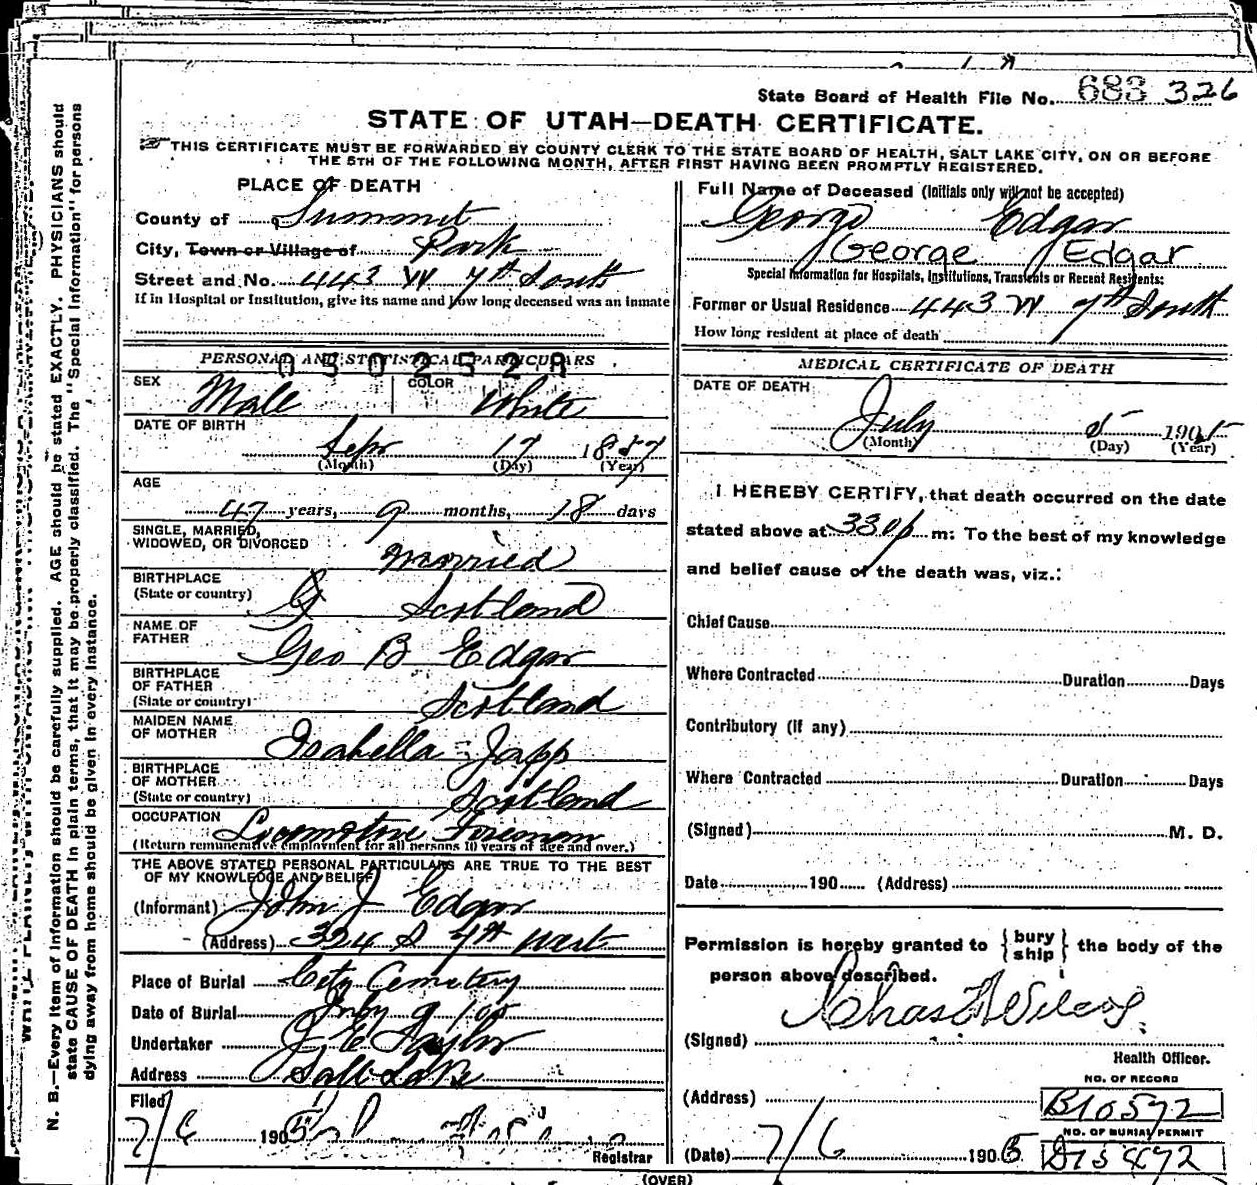 State Board of Health File No. 683 326
STATE OF UTAH—DEATH CERTIFICATE.
THIS CERTIFICATE MUST BE FORWARDED BY COUNTY CLERK TO THE STATE BOARD OF HEALTH, SALT LAKE CITY, ON OR BEFORE
THE 5TH OF THE FOLLOWING MONTH, AFTER FIRST HAVING BEEN PROMPTLY REGISTERED.
N. B.—Every item of information should be carefully supplied. AGE should be stated EXACTLY. PHYSICIANS should
state CAUSE OF DEATH in plain terms, that it may be properly classified. The "Special Information" for persons
dying away from home should be given in every instance.
PLACE OF DEATH
County of Summit
City, Town or Village of Park
Street and No. 443 W 7th South
If in Hospital or Institution, give its name and how long deceased was an inmate
PERSONAL AND STATISTICAL PARTICULARS
SEX Male COLOR White
DATE OF BIRTH
Sepr 17 1857
(Month) (Day) (Year)
AGE
47 years, 9 months, 18 days
SINGLE, MARRIED,
WIDOWED, OR DIVORCED Married
BIRTHPLACE
(State or country) Scotland
NAME OF
FATHER Geo B Edgar
BIRTHPLACE
OF FATHER
(State or country) Scotland
MAIDEN NAME
OF MOTHER Isabella Japp
BIRTHPLACE
OF MOTHER
(State or country) Scotland
OCCUPATION Locomotive Foreman
(Return remunerative employment for all persons 10 years of age and over.)
THE ABOVE STATED PERSONAL PARTICULARS ARE TRUE TO THE BEST
OF MY KNOWLEDGE AND BELIEF
(Informant) John J Edgar
(Address) 324 S 7th West
Place of Burial City Cemetery
Date of Burial July 9 / 05
Undertaker J E Taylor
Address Salt Lake
Filed
7/6 1905
Registrar
Full Name of Deceased (Initials only will not be accepted)
George Edgar
George Edgar
Special Information for Hospitals, Institutions, Transients or Recent Residents:
Former or Usual Residence 443 W 7th South
How long resident at place of death
MEDICAL CERTIFICATE OF DEATH
DATE OF DEATH
July 5 1905
(Month) (Day) (Year)
I HEREBY CERTIFY, that death occurred on the date
stated above at 330 p m: To the best of my knowledge
and belief cause of the death was, viz.:
Chief Cause
Where Contracted Duration Days
Contributory (if any)
Where Contracted Duration Days
(Signed) M. D.
Date 190 (Address)
Permission is hereby granted to { bury ship } the body of the
person above described.
(Signed) Chas
Health Officer.
NO. OF RECORD
(Address) B10572
NO. OF BURIAL PERMIT
(Date) 7/6 1905
(OVER)